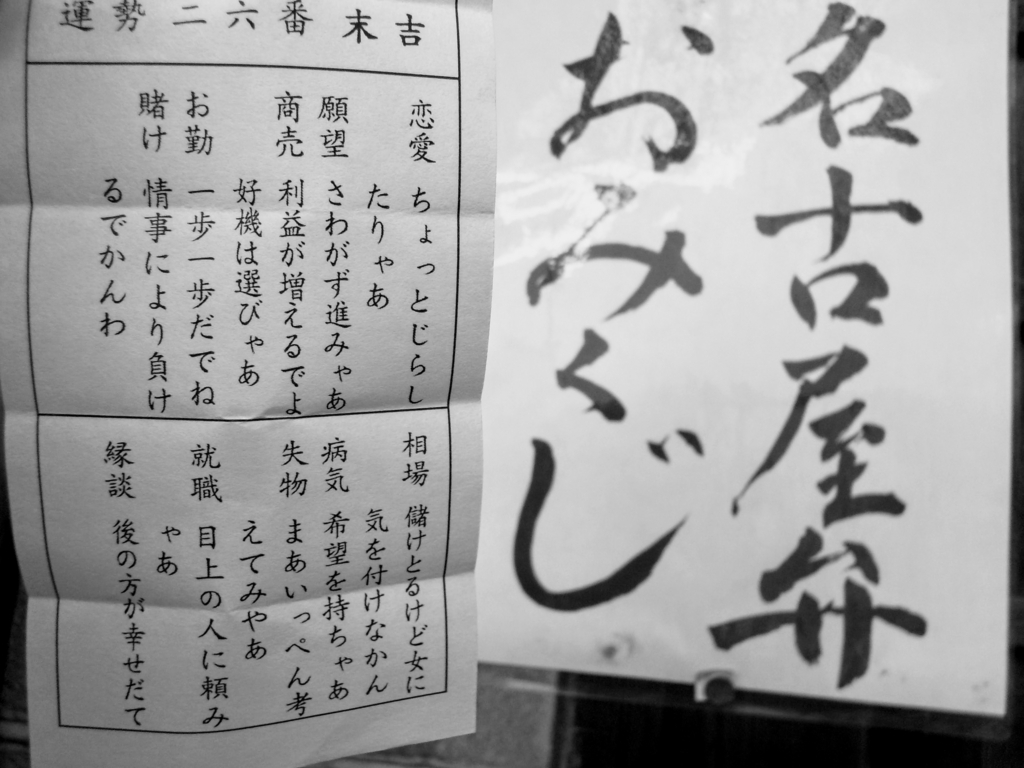 名古屋弁
おみくじ
運勢二六番 末吉
恋愛 ちょっとじらし
たりゃあ
願望 さわがず進みゃあ
商売 利益が増えるでよ
好機は選びゃあ
お勤 一歩一歩だでね
賭け 情事により負け
るでかんわ
相場 儲けとるけど女に
気を付けなかん
病気 希望を持ちゃあ
失物 まあいっぺん考
えてみやあ
就職 目上の人に頼み
ゃあ
縁談 後の方が幸せだて